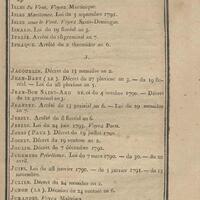 ISLES du Vent. Voyez Martinique.
ISLES Maritimes. Loi du 3 septembre 1792.
ISLES sous le Vent. Voyez Saint-Domingue.
ISNARD. Loi du 19 floréal an 3.
ITALIE. Arrêté du germinal an 7.
ITHAQUE. Arrêté du 2 thermidor an 6.
J.
JACOBINS. Décret du 13 nivôse an 2.
JEAN-BART (le). Décret du 27 pluviôse an 3. — du 19
— Loi du 28 pluviôse an 5.
JEAN-BON SAINT-AND et du 4 octobre 1790. — Décret
du 12 germinal an 3.
JEANNET. Arrêté du 13 prairial an 6. — Loi du
an 7.
JERSEY. Arrêté du 8 floréal an 6.
JÉSUS. Loi du 24 juin 1793. Voyez
JONES (Paul). Décret du 19 juillet 1792.
JOURET. Décret du 19 ventôse an 2.
JUCLIN. Décret du 7 décembre 1792.
JUGEMENS Loi du 7 mars 1790. — du 30. — du 20
avril.
JUIFS. Loi du 28 janvier 1790. — du 3 janvier 1791. — du 13
novembre.
JULIEN. Décret du 24 nivôse an 2.
JUNON (la). Décision du 24 ventôse an 6.
Voyez